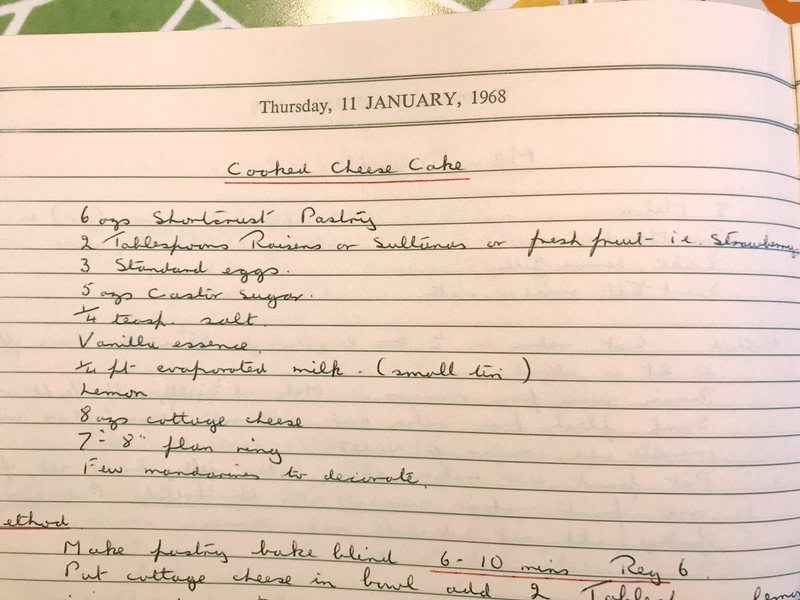 Thursday, 11 JANUARY, 1968
Cooked Cheese Cake
6 ozs Shortcrust Pastry
2 Tablespoons Raisens or Sultanas or fresh fruit - i.e. Strawberry
3 Standard eggs.
5 ozs Castor Sugar.
1/4 teasp. salt.
Vanilla essence.
1/4 pt evaporated milk. (small tin)
Lemon
8 ozs cottage cheese
7" - 8" flan ring
Few mandarines to decorate.
ethod
Make pastry bake blind 6 - 10 mins Reg 6.
Put cottage cheese in bowl add 2 Tablesp